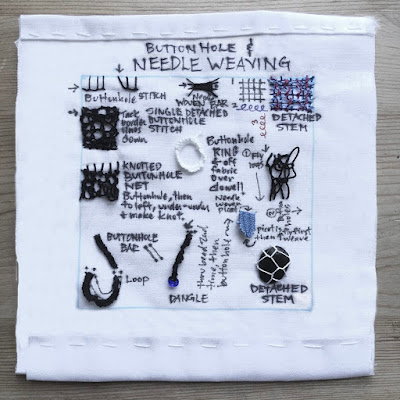 BUTTONHOLE &
→ NEEDLE WEAVING
Buttonhole STITCH
WOVEN BAR
DETACHED
STEM
Tack
border
lines
down
SINGLE DETACHED
BUTTONHOLE
STITCH
Buttonhole
RING
off
fabric
over
dowell
KNOTTED
BUTTONHOLE
NET
Buttonhole, then
to left, under-under
& make knot.
Needle
woven
picot
picot is first
then weave
BUTTONHOLE
BAR
LOOP
DANGLE
thru bead 2nd
time, then
buttonhole
DETACHED
STEM